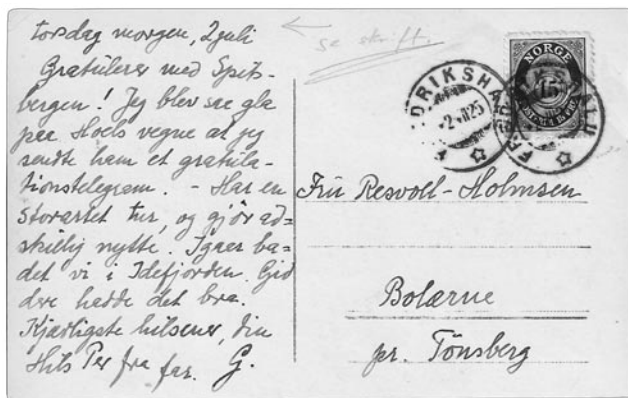 torsdag morgen, 2 juli
Gratulerer med Spits-
bergen! Jeg blev saa gla
paa Hoels vegne at jeg
sendte ham et gratula-
tionstelegram. - Har en
storartet tur, og gjör ad-
skillig nytte. Igaar ba-
det vi i Idefjorden. Gid
dere hadde det bra.
Kjærligste hilsener, din
Hils Per fra far. G.
se skrift.
NORGE
15
FREDRIKSHALD
2 VII 25
FREDRIKSHALD
Fru Resvoll-Holmsen
Bolærne
pr. Tönsberg